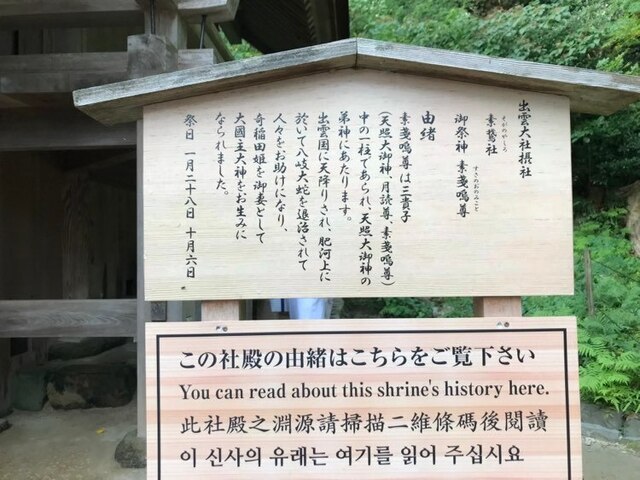 出雲大社摂社
そがのやしろ
素鵞社
御祭神 素戔嗚尊
すさのおのみこと
由緒
素戔嗚尊は三貴子
(天照大御神、月読尊、素戔嗚尊)
中の一柱であられ、天照大御神の
弟神にあたります。
出雲国に天降りされ、肥河上に
於いて八岐大蛇を退治されて
人々をお助けになり、
奇稲田姫を御妻として
大國主大神をお生みに
なられました。
祭日 一月二十八日 十月六日
この社殿の由緒はこちらをご覧下さい
You can read about this shrine's history here.
此社殿之淵源請掃描二維條碼後閱讀
이 신사의 유래는 여기를 읽어 주십시요